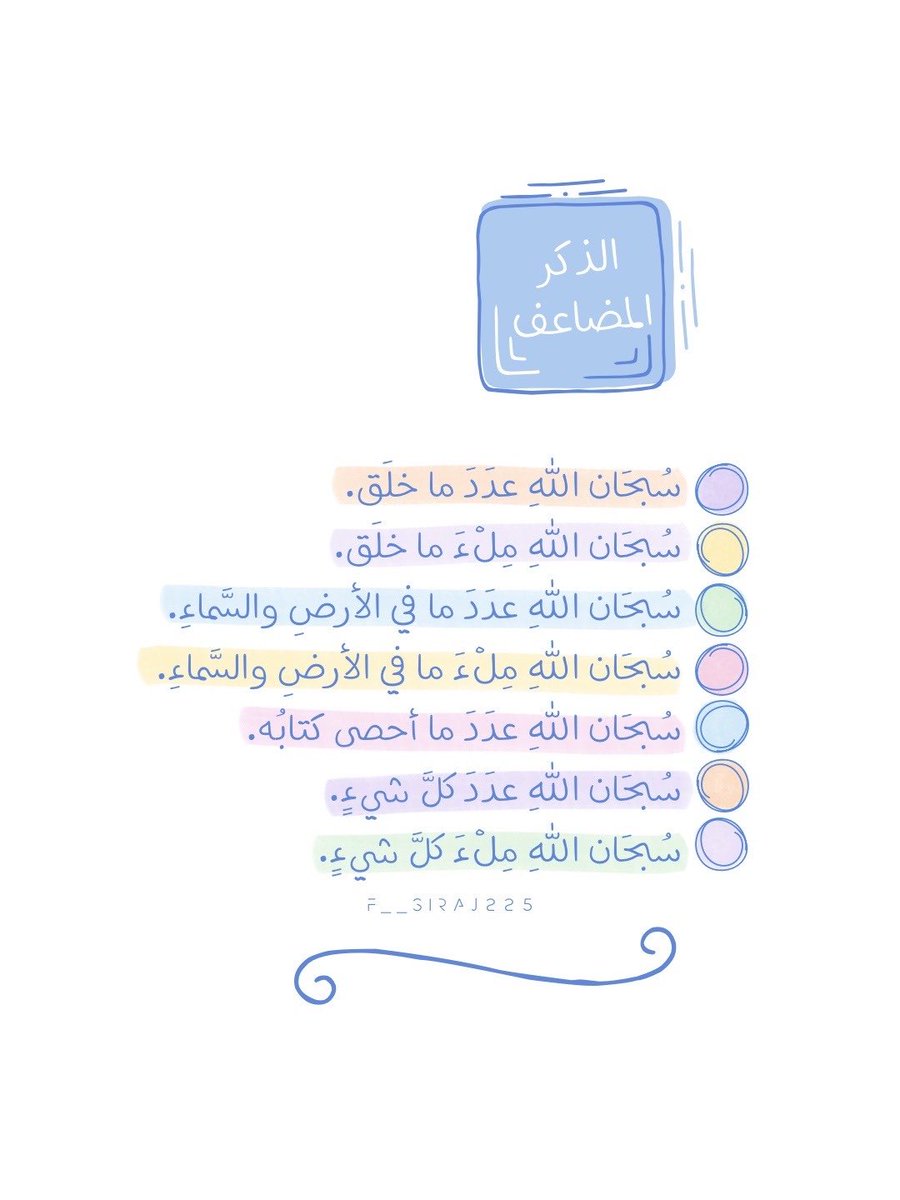 الذكر
المضاعف
سُبحَان اللّٰهِ عدَدَ ما خلَق.
سُبحَان اللّٰهِ مِلْءَ ما خلَق.
سُبحَان اللّٰهِ عدَدَ ما في الأرضِ والسَّماءِ.
سُبحَان اللّٰهِ مِلْءَ ما في الأرضِ والسَّماءِ.
سُبحَان اللّٰهِ عدَدَ ما أحصى كتابُه.
سُبحَان اللّٰهِ عدَدَ كلَّ شيءٍ.
سُبحَان اللّٰهِ مِلْءَ كلَّ شيءٍ.
F__SIRAJ225